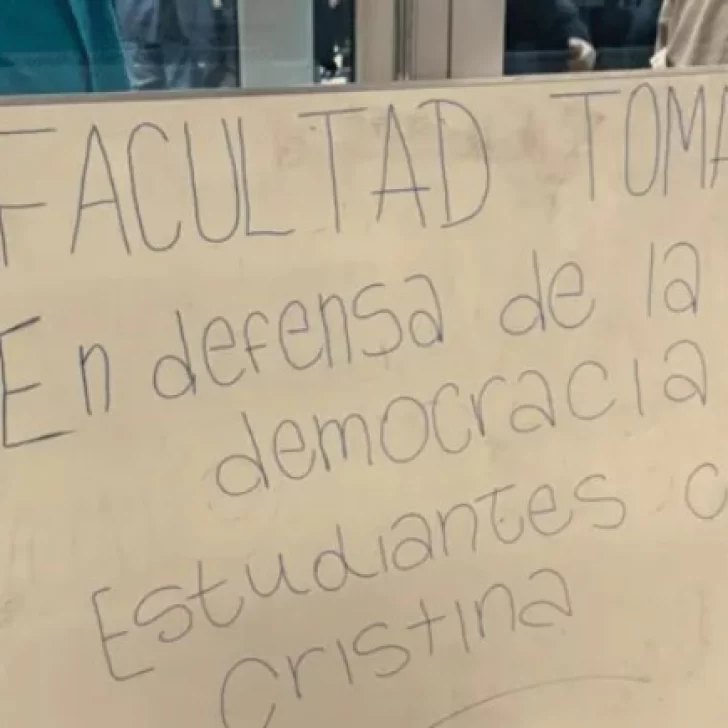 FACULTAD TOMA
En defensa de la
democracia
Estudiantes c
cristina